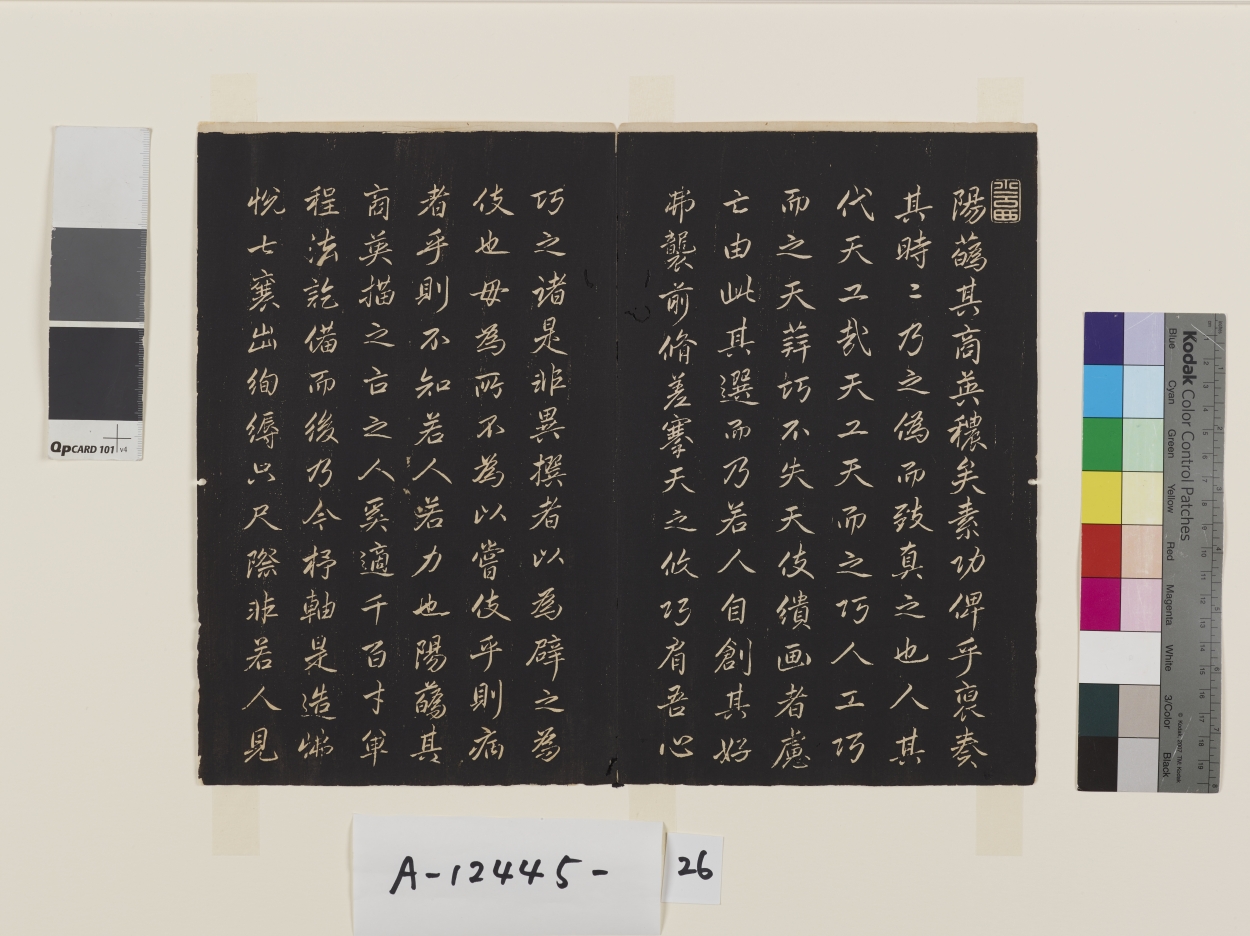 陽蘤其商英穠矣素功俾乎褎奏
其時〻乃之偽而致真之也人其
代天工哉天工天而之巧人工巧
而之天蕼巧不失天伎繢画者慮
亡由此其選而乃若人自創其好
弗襲前脩差搴天之攸巧肩吾心
巧之諸是非異撰者以為躃之為
伎也毋為所不為以嘗伎乎則病
者乎則不知若人若力也陽蘤其
商英描之亡之人奚適千百寸單
程法訖備而後乃今杼軸是造
悅七襄出絢縟只尺際非若人見
A-12445-
26
QPCARD 101 v4
Kodak Color Control Patches
Blue
Cyan
Green
Yellow
Red
Magenta
White
3/Color
Black
© Kodak, 2007 TM: Kodak